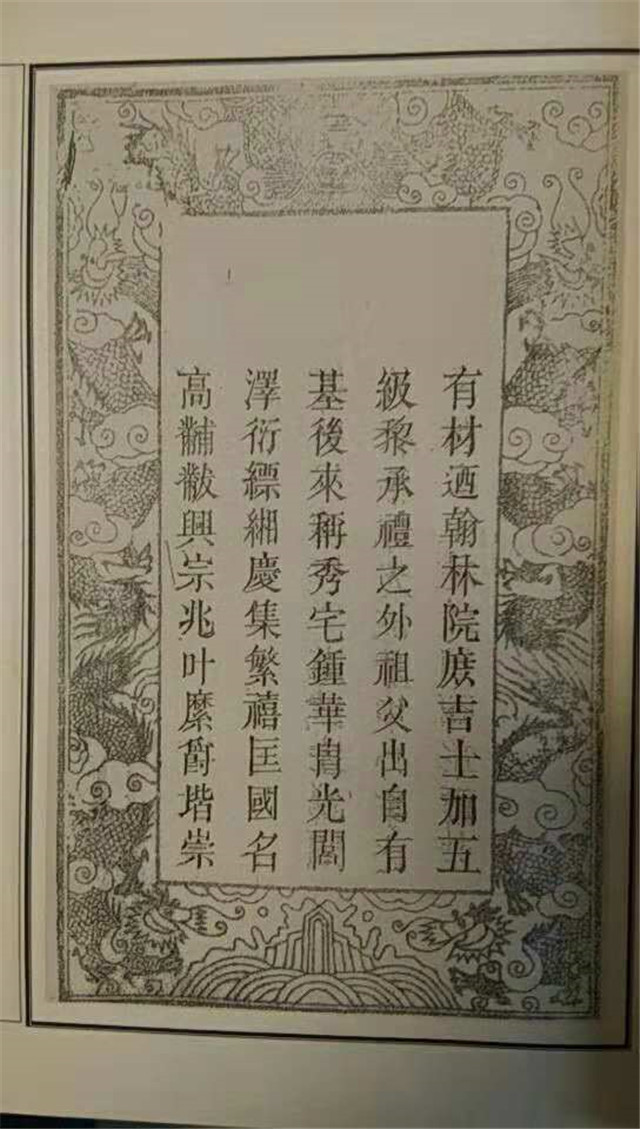 有材迺翰林院庶吉士加五
級黎承禮之外祖父出自有
基後來稱秀宅鍾華胄光閥
澤衍縹緗慶集繁禧匡國名
高黼黻興宗兆叶縻爵堦崇